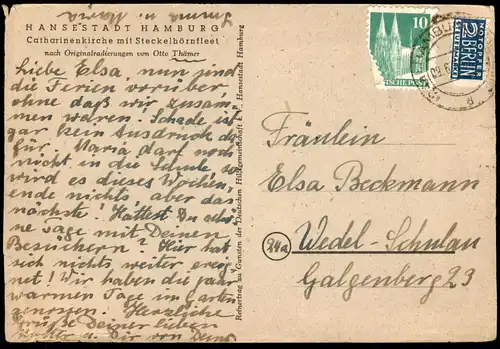 Emma u. Maria
HANSESTADT HAMBURG
Catharinenkirche mit Steckelhörnfleet
nach Originalradierungen von Otto Thämer
Liebe Elsa, nun sind
die Ferien vorüber,
ohne daß wir zusam
men waren. Schade ist
gar kein Ausdruck da
für. Maria darf noch
nicht in die Schule, so
wird es dieses Wochen,
ende nichts, aber das
nächste! Hattest Du schö
ne Tage mit Deinen
Besuchern? Hier hat
sich nichts weiter ereig
net! Wir haben die paar
warmen Tage im Garten
genossen. Herzliche
Grüße Deiner lieben
Mutter u. Dir von Deiner
Reinertrag zu Gunsten der Deutschen Hilfsgemeinschaft e.V., Hansestadt Hamburg
10
DEUTSCHE POST
2
NOTOPFER
BERLIN
STEUERMARKE
HAMBURG
Fräulein
Elsa Beckmann
24a
Wedel-Schulau
Galgenberg 23